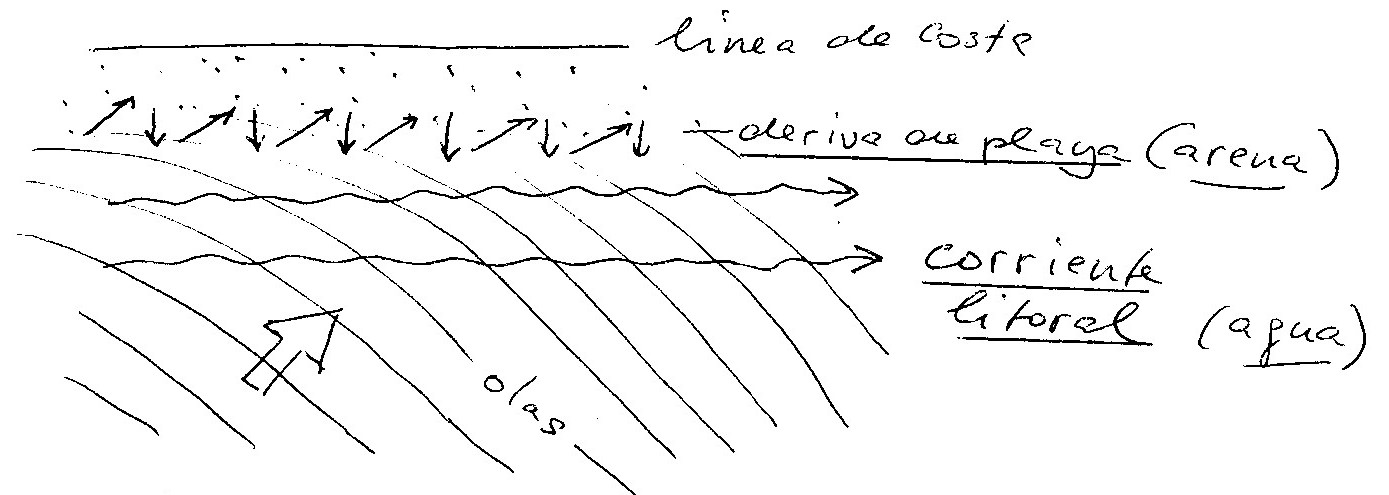 línea de costa
deriva de playa (arena)
corriente
litoral (agua)
olas